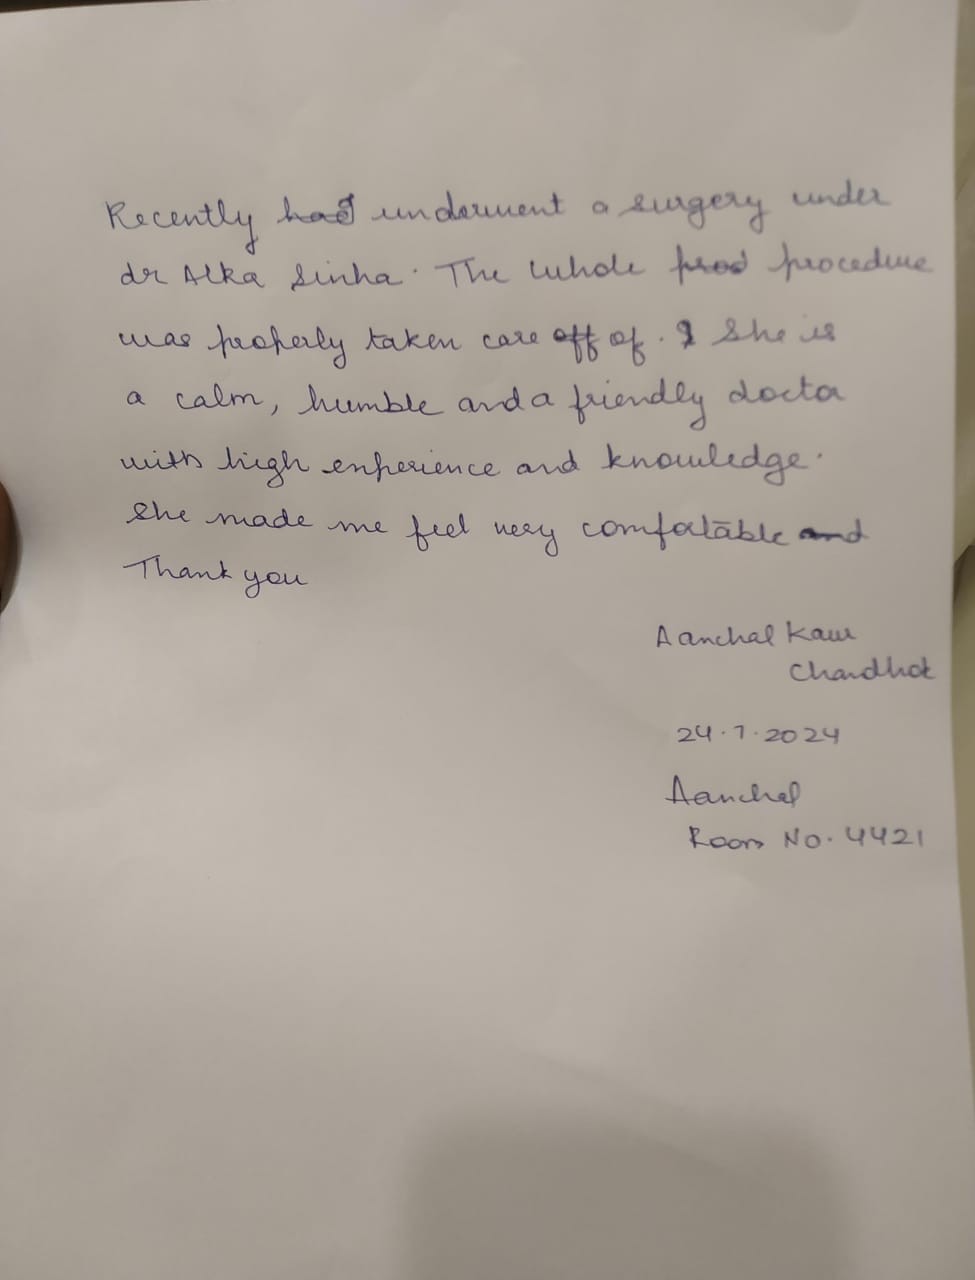 Recently had underwent a surgery under
dr Alka Sinha. The whole prod procedure
was properly taken care off of. I She is
a calm, humble and a friendly doctor
with high experience and knowledge.
She made me feel very comfortable and
Thank you
Aanchal Kaur
Chandhok
24.7.2024
Aanchal
Room No. 4421